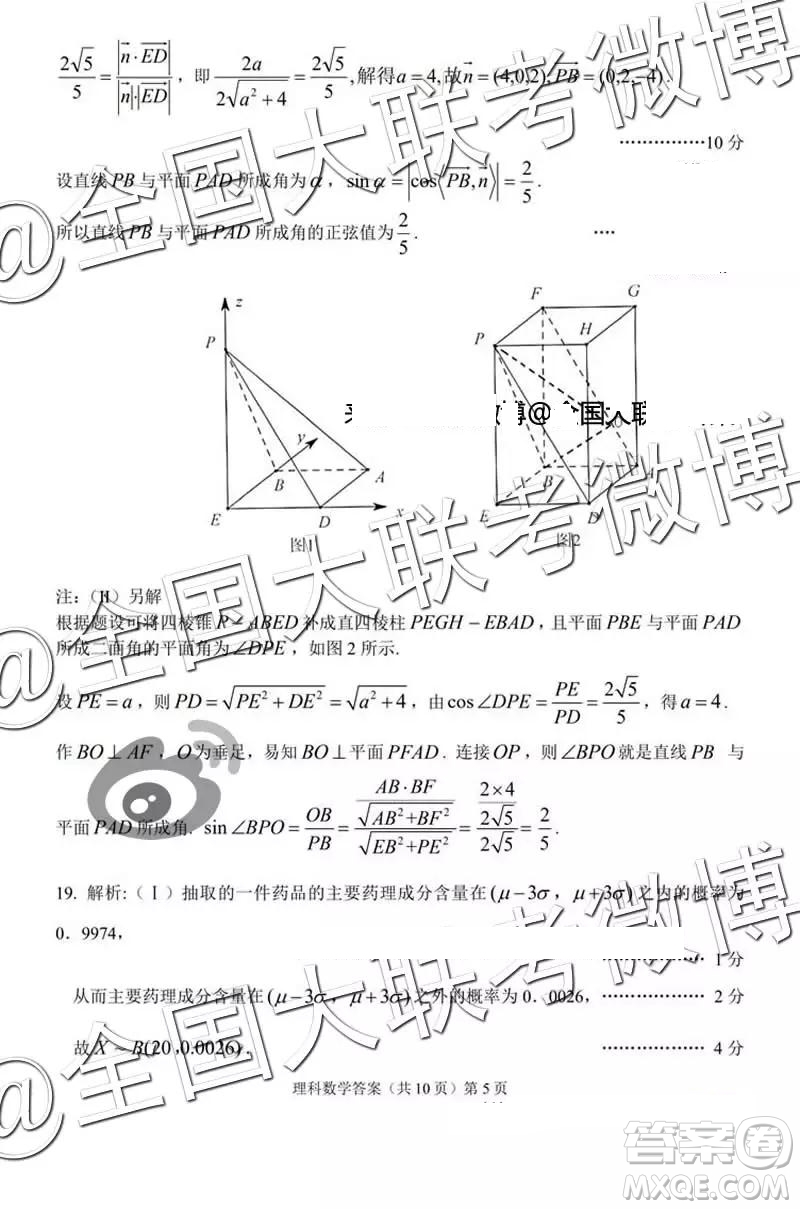 2√5/5 = |n⃗·ED⃗|/(|n⃗|·|ED⃗|)，即 2a/(2√(a²+4)) = 2√5/5，解得a=4，故n⃗=(4,0,2)，PB⃗=(0,2,-4)．
……………10 分
设直线 PB 与平面 PAD 所成角为 α，sin α = |cos⟨PB⃗, n⃗⟩| = 2/5．
所以直线 PB 与平面 PAD 所成角的正弦值为 2/5．
z
P
y
B
A
E
D
x
图1
F
G
P
H
O
B
E
D
图2
注：（Ⅱ）另解
根据题设可将四棱锥 P－ABED 补成直四棱柱 PEGH－EBAD，且平面 PBE 与平面 PAD
所成二面角的平面角为∠DPE，如图 2 所示.
设 PE = a，则 PD = √(PE²+DE²) = √(a²+4)，由 cos∠DPE = PE/PD = 2√5/5，得 a = 4．
作 BO⊥AF，O为垂足，易知 BO⊥平面 PFAD．连接 OP，则∠BPO 就是直线 PB 与
平面 PAD 所成角. sin∠BPO = OB/PB = (AB·BF/√(AB²+BF²))/√(EB²+PE²) = (2×4/2√5)/2√5 = 2/5．
19. 解析:(Ⅰ) 抽取的一件药品的主要药理成分含量在(μ-3σ，μ+3σ)之内的概率为
0．9974，
………………1 分
从而主要药理成分含量在(μ-3σ，μ+3σ)之外的概率为 0．0026，……………… 2 分
故 X ~ B(20,0.0026)． ……………… 4 分
理科数学答案（共 10 页）第 5 页
@全国大联考微博
答案圈
MXQE.COM